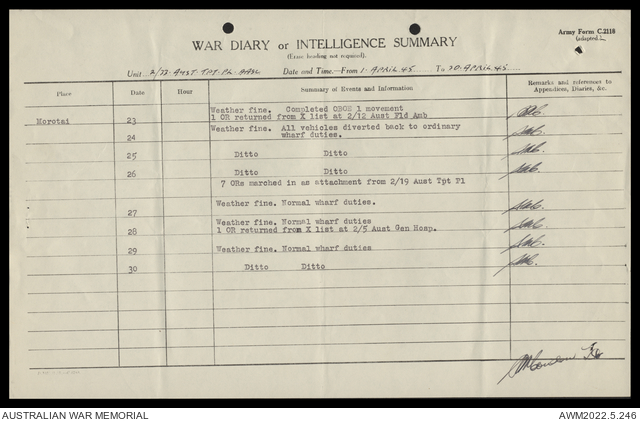 Army Form C.2118
(adapted).
WAR DIARY or INTELLIGENCE SUMMARY
(Erase heading not required).
Unit 2/22 AUST TPT PL AASC Date and Time.—From 1 APRIL 45 To 30 APRIL 45
Place Date Hour Summary of Events and Information Remarks and references to Appendices, Diaries, &c.
Weather fine. Completed OBOE 1 movement
Morotai 23 1 OR returned from X list at 2/12 Aust Fld Amb
24 Weather fine. All vehicles diverted back to ordinary
wharf duties.
25 Ditto Ditto
26 Ditto Ditto
7 ORs marched in as attachment from 2/19 Aust Tpt Pl
27 Weather fine. Normal wharf duties.
Weather fine. Normal wharf duties
28 1 OR returned from X list at 2/5 Aust Gen Hosp.
29 Weather fine. Normal wharf duties
30 Ditto Ditto
AUSTRALIAN WAR MEMORIAL AWM2022.5.246